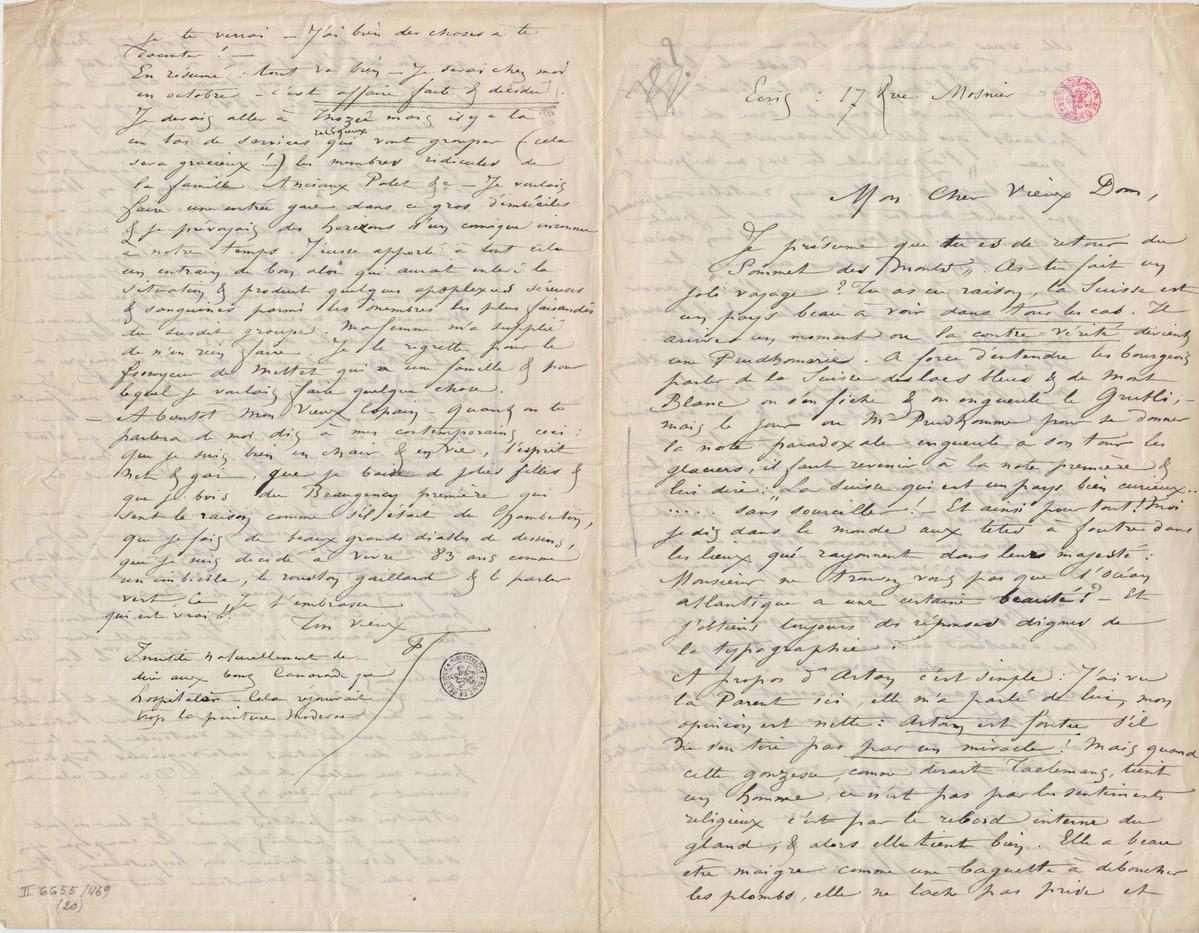 Je te verrai – J'ai bien des choses à te
raconter ! –
En résumé : tout va bien – Je serai chez moi
en octobre – c'est affaire faite & décidée.
Je devais aller à Thozée mais il y a là
un tas de services religieux qui vont grouper (– cela
sera gracieux !) les membres ridicules de
la famille Anciaux Polet &c – Je voulais
faire une entrée gaie dans ce gros d'imbéciles
& je prévoyais des horizons d'un comique inconnu
à notre temps. J'eusse apporté à tout cela
un entrain de bon aloi qui aurait enlevé la
situation & produit quelques apoplexies séreuses
& sanguines parmi les membres les plus faisandés
du susdit groupe. Ma femme m'a supplié
de n'en rien faire. Je le regrette pour le
fossoyeur de Mettet qui a une famille & pour
lequel je voulais faire quelque chose.
– A bientôt mon vieux Copain – quand on te
parlera de moi dis à mes contemporains ceci :
que je suis bien en chair & en vie, l'esprit
net & gai, que je baise de jolies filles &
que je bois du Beaugency première qui
sent le raisin comme s'il était du Chambertin,
que je fais de beaux grands diables de dessins,
que je suis décidé à vivre 83 ans comme
un imbécile, le rouston gaillard & le parler
vert. Ce
qui est vrai. Je t'embrasse
Ton vieux
Inutile naturellement de
dire aux bons Camarades que
hospitalier – Cela réjouirait
trop la peinture Moderne
II 6655/469
(20)
9
Ecris : 17 Rue Mosnier
Mon Cher Vieux Dom,
Je présume que tu es de retour du
"Sommet des Monts". As-tu fait un
joli voyage ? Tu as eu raison, la Suisse est
un pays beau à voir dans tous les cas. Il
arrive un moment où la contre-vérité devient
une Prudhomerie. A force d'entendre les bourgeois
parler de la Suisse des lacs bleus & du Mont
Blanc on s'en fiche & on engueule le Grutli, –
mais le jour où Mr Prudhomme pour se donner
la note paradoxale engueule à son tour les
glaciers, il faut revenir à la note première &
lui dire : La Suisse qui est un pays bien curieux..
..... "sans sourciller". – Et ainsi pour tout ! Moi
je dis dans le monde aux têtes à foutre dans
les lieux qui rayonnent dans leurs majesté :
Monsieur ne trouvez vous pas que l'océan
atlantique a une certaine beauté ? – Et
j'obtiens toujours des réponses dignes de
la typographie.
A propos d'Artan c'est simple : J'ai vu
la Parent ici, elle m'a parlé de lui, mon
opinion est nette : Artan est foutu s'il
ne s'en tire pas par un miracle ! Mais quand
cette gonzesse, comme dirait Taelemans, tient
un homme, ce n'est pas par les sentiments
religieux c'est par le rebord interne du
gland, & alors elle tient bien. Elle a beau
être maigre comme une baguette à déboucher
les plombs, elle ne lâche pas prise et